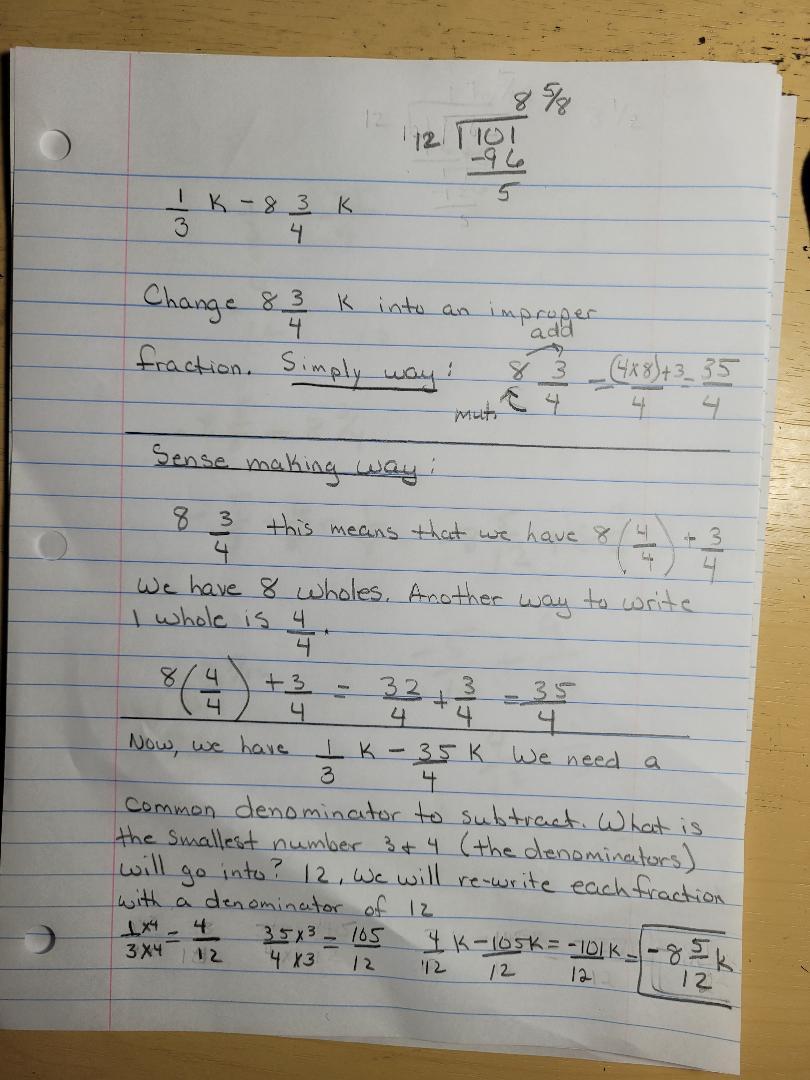 8 5/8
12 101
-96
5
1/3 K - 8 3/4 K
Change 8 3/4 K into an improper
add
fraction. Simply way: 8 3/4 = (4x8)+3/4 = 35/4
mut.
Sense making way:
8 3/4 this means that we have 8(4/4) + 3/4
We have 8 wholes. Another way to write
1 whole is 4/4.
8(4/4) + 3/4 = 32/4 + 3/4 = 35/4
Now, we have 1/3 K - 35/4 K We need a
common denominator to subtract. What is
the smallest number 3 & 4 (the denominators)
will go into? 12, we will re-write each fraction
with a denominator of 12
1x4/3x4 = 4/12 35x3/4x3 = 105/12 4/12 K - 105/12 K = -101/12 K = -8 5/12 K